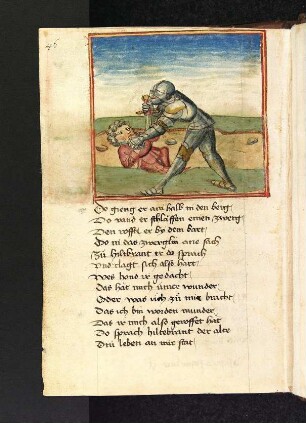 Do gieng er am halb in den berg
Do vand er schlaffen einen zwerg
Den rofft er by dem bart
Do in das zwerglin ane sach
Zů hiltebrant er do sprach
Vnd clagt sich also hart
Wes hond ir gedacht
Das hat mich vmer wunder
Oder was uch zů mir bracht
Das ich bin worden munder
Das ir mich also geroffet hät
Do sprach hiltebrant der alte
Din leben an mir stat